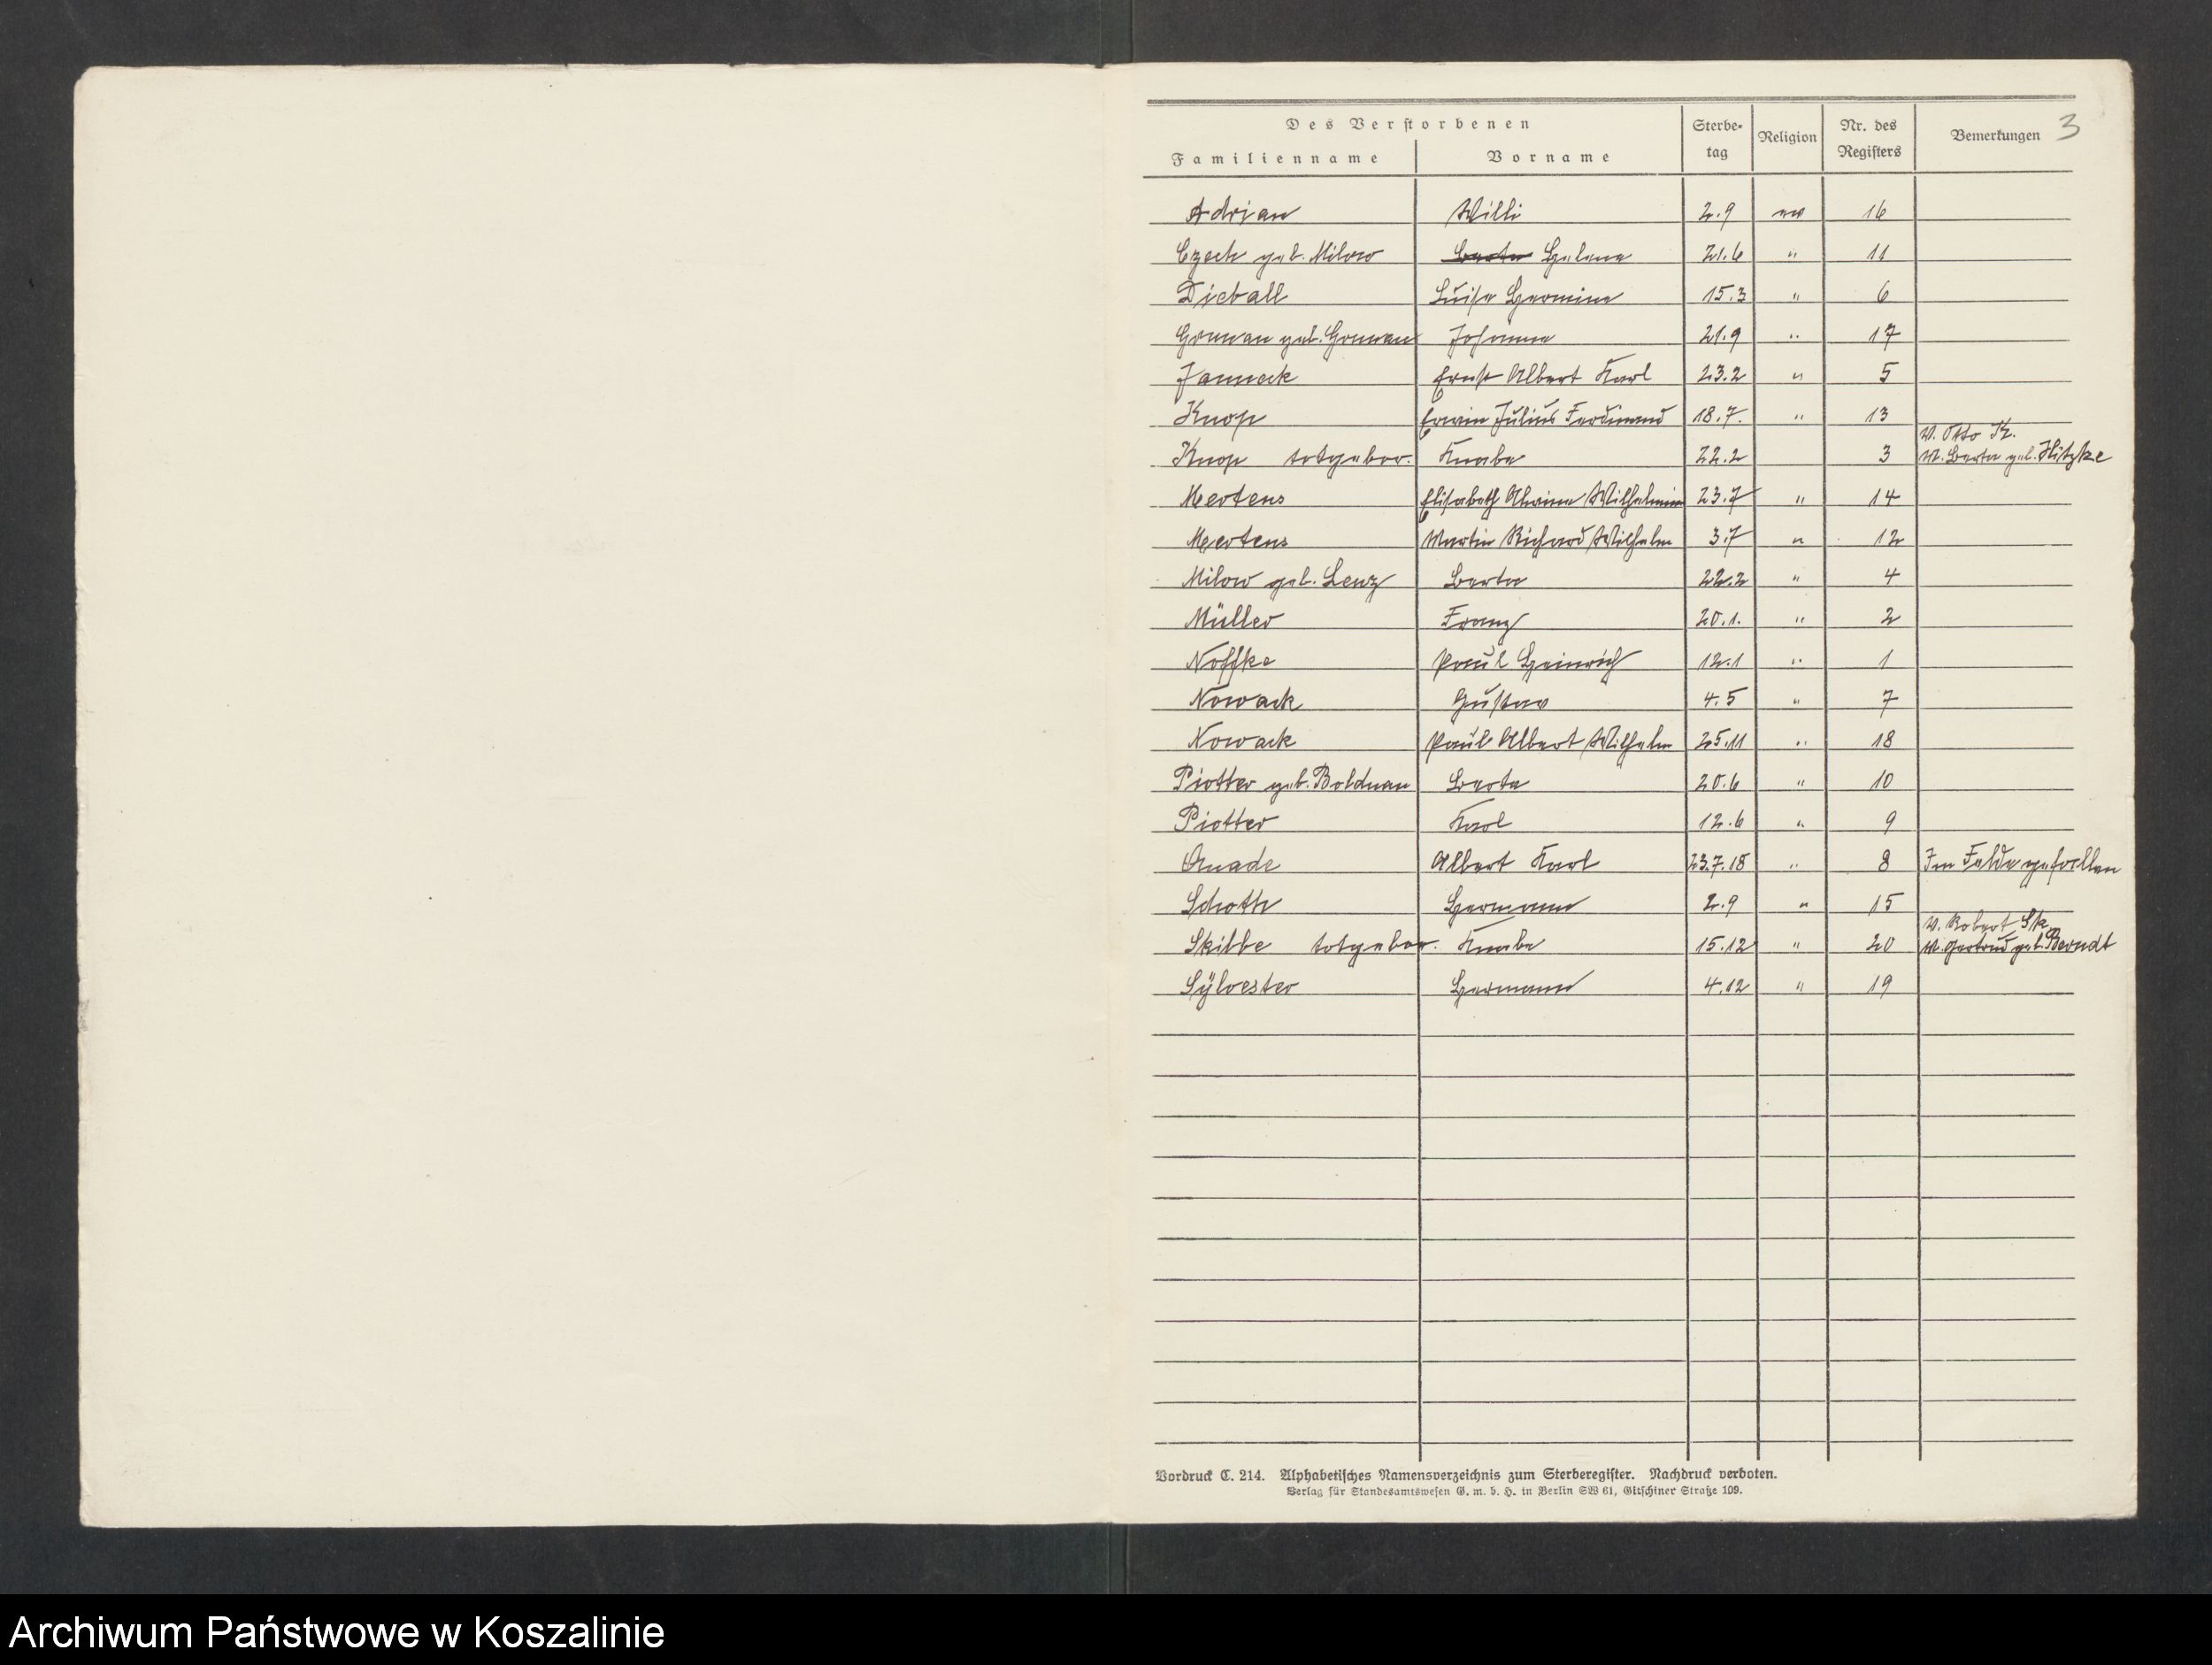 3
Des Verstorbenen Sterbetag Religion Nr. des Registers Bemerkungen
Familienname Vorname
Adrian Willi 2.9 ev 16
Czech geb. Milow Berta Helene 21.6 " 11
Dieball Luise Hermine 15.3 " 6
Gonnan geb. Gonnan Johanna 21.9 " 17
Janneck Ernst Albert Karl 23.2 " 5
Knop Erwin Julius Ferdinand 18.7. " 13
V. Otto K.
Knop totgebor. Knabe 22.2 3 M. Berta geb. Hitzke
Mertens Elisabeth Alwine Wilhelmine 23.7 " 14
Mertens Martin Richard Wilhelm 3.7 " 12
Milow geb. Lenz Berta 22.2 " 4
Müller Franz 20.1. " 2
Noffke Paul Heinrich 12.1 " 1
Nowack Gustav 4.5 " 7
Nowack Paul Albert Wilhelm 25.11 " 18
Piotter geb. Boldnan Berta 20.6 " 10
Piotter Karl 12.6 " 9
Quade Albert Karl 23.7.18 " 8 Im Felde gefallen
Schoth Hermann 2.9 " 15
V. Robert Sk.
Skibbe totgebor. Knabe 15.12 " 20 M. Gertrud geb. Berndt
Sÿlvester Hermann 4.12 " 19
Vordruck C. 214. Alphabetisches Namensverzeichnis zum Sterberegister. Nachdruck verboten.
Verlag für Standesamtswesen G. m. b. H. in Berlin SW 61, Gitschiner Straße 109.
Archiwum Państwowe w Koszalinie